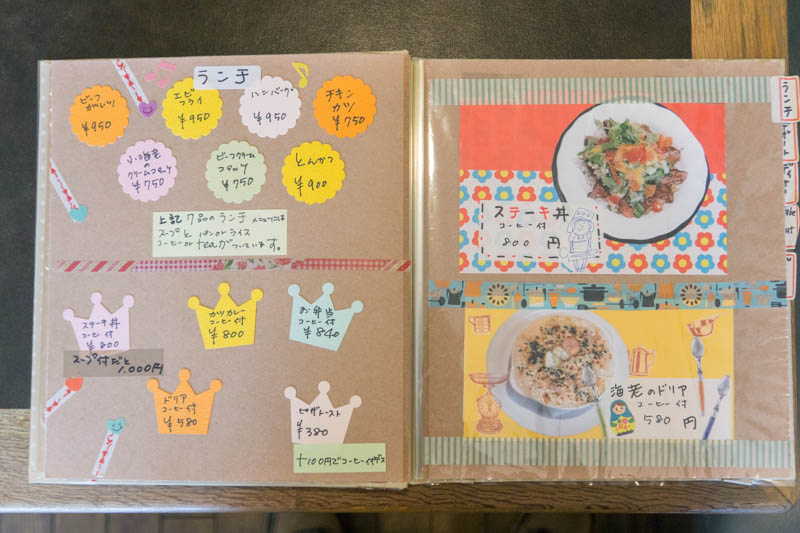 ランチ
ビーフ
カツレツ
¥950
エビ
フライ
¥950
ハンバーグ
¥950
チキン
カツ
¥750
小海老
の
クリームコロッケ
¥750
ビーフクリーム
コロッケ
¥750
とんかつ
¥900
上記 7品のランチ メニューには
スープと パンorライス
コーヒー or teaがついています。
ステーキ丼
コーヒー付
¥800
スープ付だと
1,000円
カツカレー
コーヒー付
¥800
お弁当
コーヒー付
¥840
ドリア
コーヒー付
¥580
ピザトースト
¥380
+100円でコーヒー付デス
ステーキ丼
コーヒー付
800 円
海老のドリア
コーヒー付
580 円
ランチ